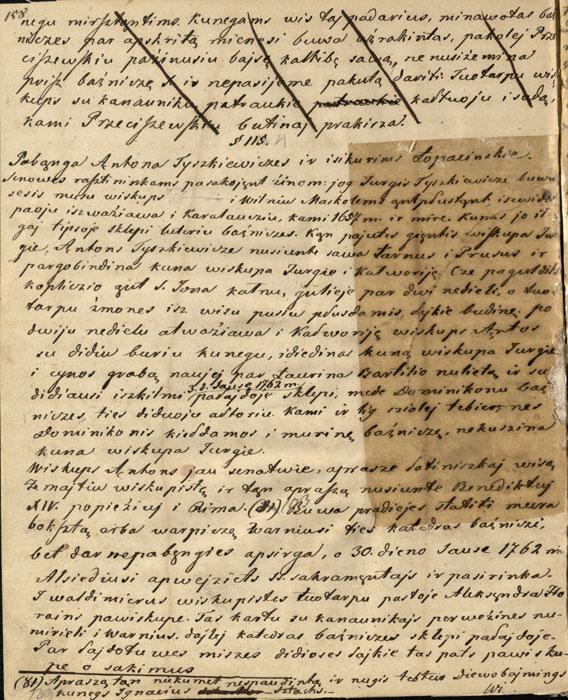 158.
negu mirsztantims. Kunegams wis tą padarius, minawotas baź
niczes par apskritą mienesi buwa uźrakintas, pakolej Prze
ciszewskiu paźinusiu bajsę kaltibę sawą, ne nusiźemina
prijsz baźniczę ir nepasijeme pakutą dariti. Tuotarpu wis
kups su kanauniku patraukie kaltuoju i sądą,
kami Przeciszewskiu butinaj prakisza.
§ 118.
Pabąnga Antona Tyszkiewiczes ir isikurims Łopacinskie.
Senowes rasztininkams pasakojąnt źinom: jog Jurgis Tyszkiewicze buwu
sesis muru wiskups i Wilniu Maskolems ąnt plustąnt iszwide
paoju iszwaźiawa i Karalaucziu, kami 1657 m: ir mire. Kunas jo il
gaj tijsoje sklepi luteriu baźniczes. Kąn pajutes giąntis wiskupa Jur
gie, Antons Tyszkiewicze nusiunte sawa tarnus i Prusus ir
pargobindina kuna wiskupa Jurgie i Kalworiję. Cze pagul didi
kopliczio gul s. Jona kalnu, guleje par dwi nedieli, o tuo
tarpu źmones isz wisu pusiu pludamis, lajkie budinę, po
dwiju nedieliu atwaźiawa i Kalworiję wiskups Antos
su didiu buriu kunegu, idiedina kuną wiskupa Jurgie
i cynos grabą naujej par Laurina Bartilio nulietą ir su
didiausi iszkilmi 3. d. Sause 1762 m palajdoje sklepi, mede Dominikonu baź
niczes, ties didwoju altoriu. Kami ir lig sziolej tebier, nes
Dominikonis kieldamos i murinę baźniczę, nekuszina
kuna wiskupa Jurgie.
Wiskups Antons jau senatwie, aprasze lotiniszkaj wisą
Źemajtiu wiskupistę ir tąn aprasą nusiunte Benediktuj
XIV. popieźiuj i Rima. (81) Buwa pradiejes statiti mura
boksztą arba warpiczę Warniusi ties katedras baźnicze,
bet dar nepabęngies apsirga, o 30. dieno Sause 1762 m
Alsiedziusi apwejziets ss. sakramęntajs ir pasirinka.
I waldimierus wiskupistes tuotarpu pastoje Aleksąndra Ho
rains pawiskupe. Tas kartu su kanaunikajs perweźines nu
mirieli i Warnius, dajlej katedras baźniczes sklepi palajdoje.
Par lajdotuwes miszes didioses lajkie tas pats pawisku-
pe o sakimus
(81) Apraszą tąn nukumet nespaudintą ir nugis tebtur Diewobajmings
kunegs Ignacius Sztachs. Wi.